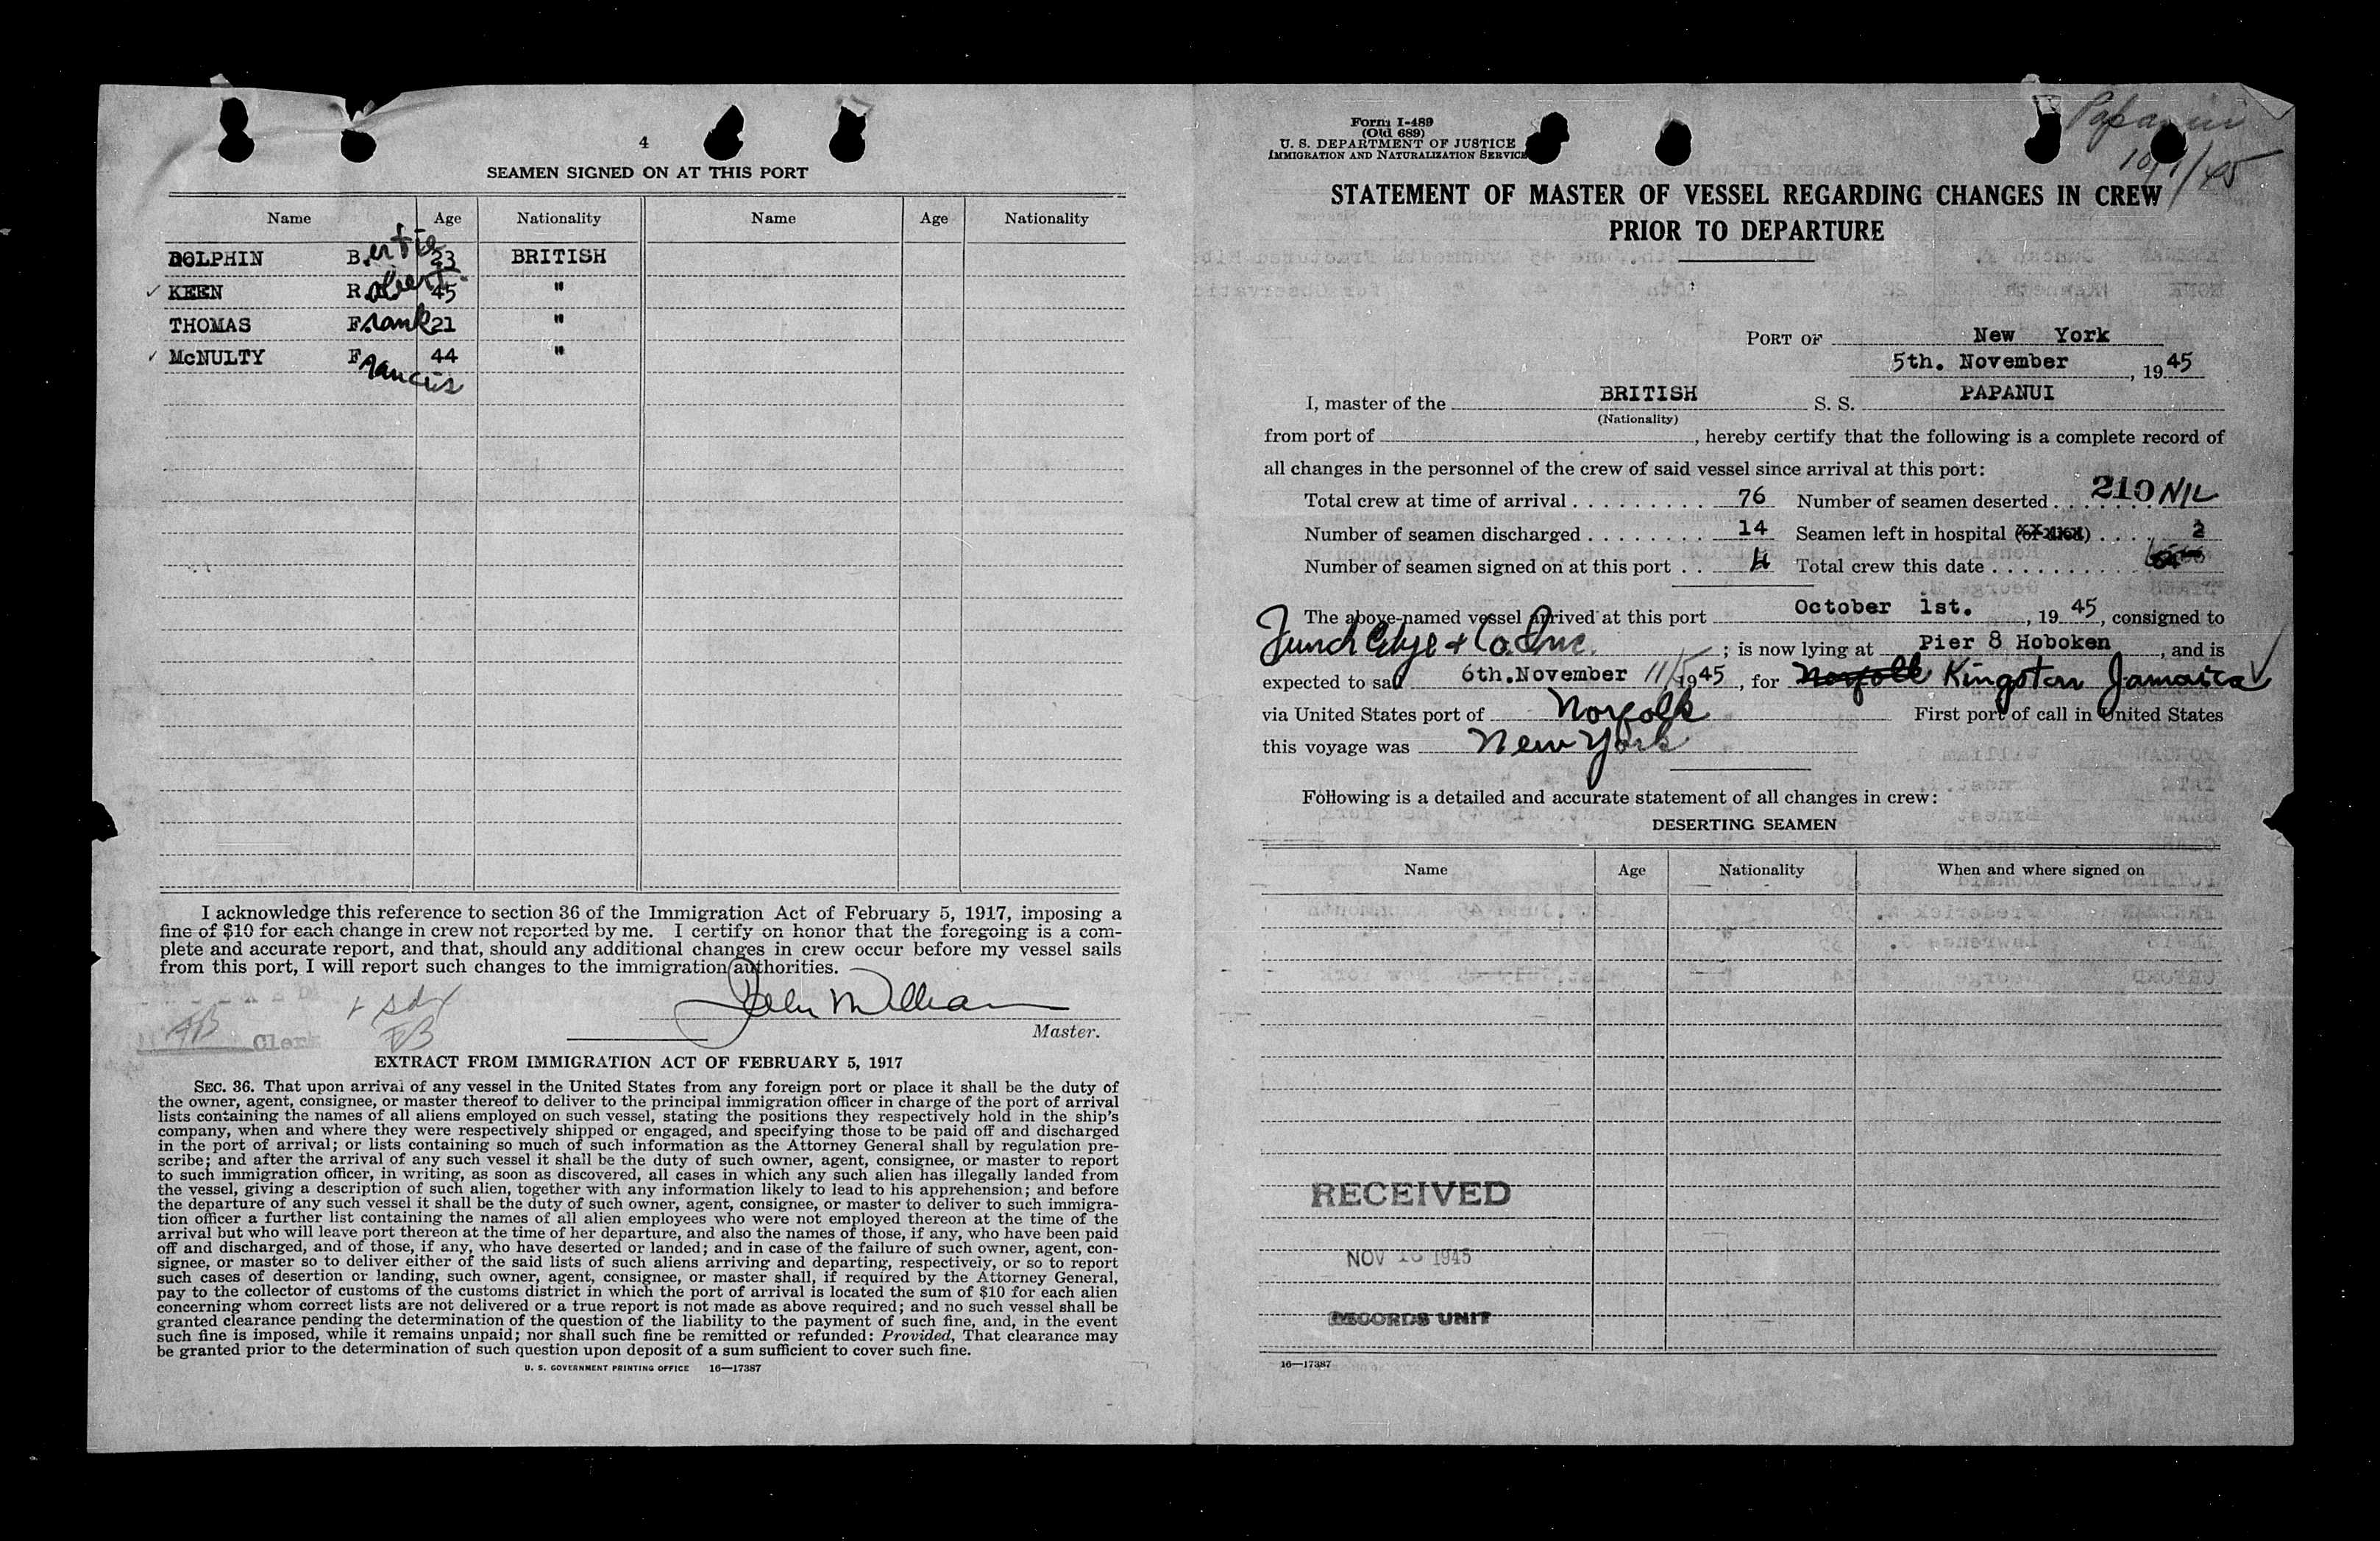 4
SEAMEN SIGNED ON AT THIS PORT
Name Age Nationality Name Age Nationality
DOLPHIN B.ertie 23 BRITISH
✓ KEEN R.obert 45 "
THOMAS F.rank 21 "
✓ McNULTY Francis 44 "
I acknowledge this reference to section 36 of the Immigration Act of February 5, 1917, imposing a
fine of $10 for each change in crew not reported by me. I certify on honor that the foregoing is a com-
plete and accurate report, and that, should any additional changes in crew occur before my vessel sails
from this port, I will report such changes to the immigration authorities.
Master.
Clerk
EXTRACT FROM IMMIGRATION ACT OF FEBRUARY 5, 1917
SEC. 36. That upon arrival of any vessel in the United States from any foreign port or place it shall be the duty of
the owner, agent, consignee, or master thereof to deliver to the principal immigration officer in charge of the port of arrival
lists containing the names of all aliens employed on such vessel, stating the positions they respectively hold in the ship's
company, when and where they were respectively shipped or engaged, and specifying those to be paid off and discharged
in the port of arrival; or lists containing so much of such information as the Attorney General shall by regulation pre-
scribe; and after the arrival of any such vessel it shall be the duty of such owner, agent, consignee, or master to report
to such immigration officer, in writing, as soon as discovered, all cases in which any such alien has illegally landed from
the vessel, giving a description of such alien, together with any information likely to lead to his apprehension; and before
the departure of any such vessel it shall be the duty of such owner, agent, consignee, or master to deliver to such immigra-
tion officer a further list containing the names of all alien employees who were not employed thereon at the time of the
arrival but who will leave port thereon at the time of her departure, and also the names of those, if any, who have been paid
off and discharged, and of those, if any, who have deserted or landed; and in case of the failure of such owner, agent, con-
signee, or master so to deliver either of the said lists of such aliens arriving and departing, respectively, or so to report
such cases of desertion or landing, such owner, agent, consignee, or master shall, if required by the Attorney General,
pay to the collector of customs of the customs district in which the port of arrival is located the sum of $10 for each alien
concerning whom correct lists are not delivered or a true report is not made as above required; and no such vessel shall be
granted clearance pending the determination of the question of the liability to the payment of such fine, and, in the event
such fine is imposed, while it remains unpaid; nor shall such fine be remitted or refunded: Provided, That clearance may
be granted prior to the determination of such question upon deposit of a sum sufficient to cover such fine.
U. S. GOVERNMENT PRINTING OFFICE 16—17387
Form I-489
(Old 689)
U. S. DEPARTMENT OF JUSTICE
IMMIGRATION AND NATURALIZATION SERVICE
Papanui
10/1/45
STATEMENT OF MASTER OF VESSEL REGARDING CHANGES IN CREW
PRIOR TO DEPARTURE
PORT OF New York
5th. November, 1945
I, master of the BRITISH S. S. PAPANUI
(Nationality)
from port of , hereby certify that the following is a complete record of
all changes in the personnel of the crew of said vessel since arrival at this port:
Total crew at time of arrival 76 Number of seamen deserted 210 NIL
Number of seamen discharged 14 Seamen left in hospital (or died) 2
Number of seamen signed on at this port 4 Total crew this date
The above-named vessel arrived at this port October 1st. , 1945, consigned to
Funch Edye & Co. Inc. ; is now lying at Pier 8 Hoboken , and is
expected to sail 6th.November 11/5 1945, for Norfolk Kingston Jamaica ✓
via United States port of Norfolk First port of call in United States
this voyage was New York
Following is a detailed and accurate statement of all changes in crew:
DESERTING SEAMEN
Name Age Nationality When and where signed on
RECEIVED
NOV 1945
RECORDS UNIT
16—17387